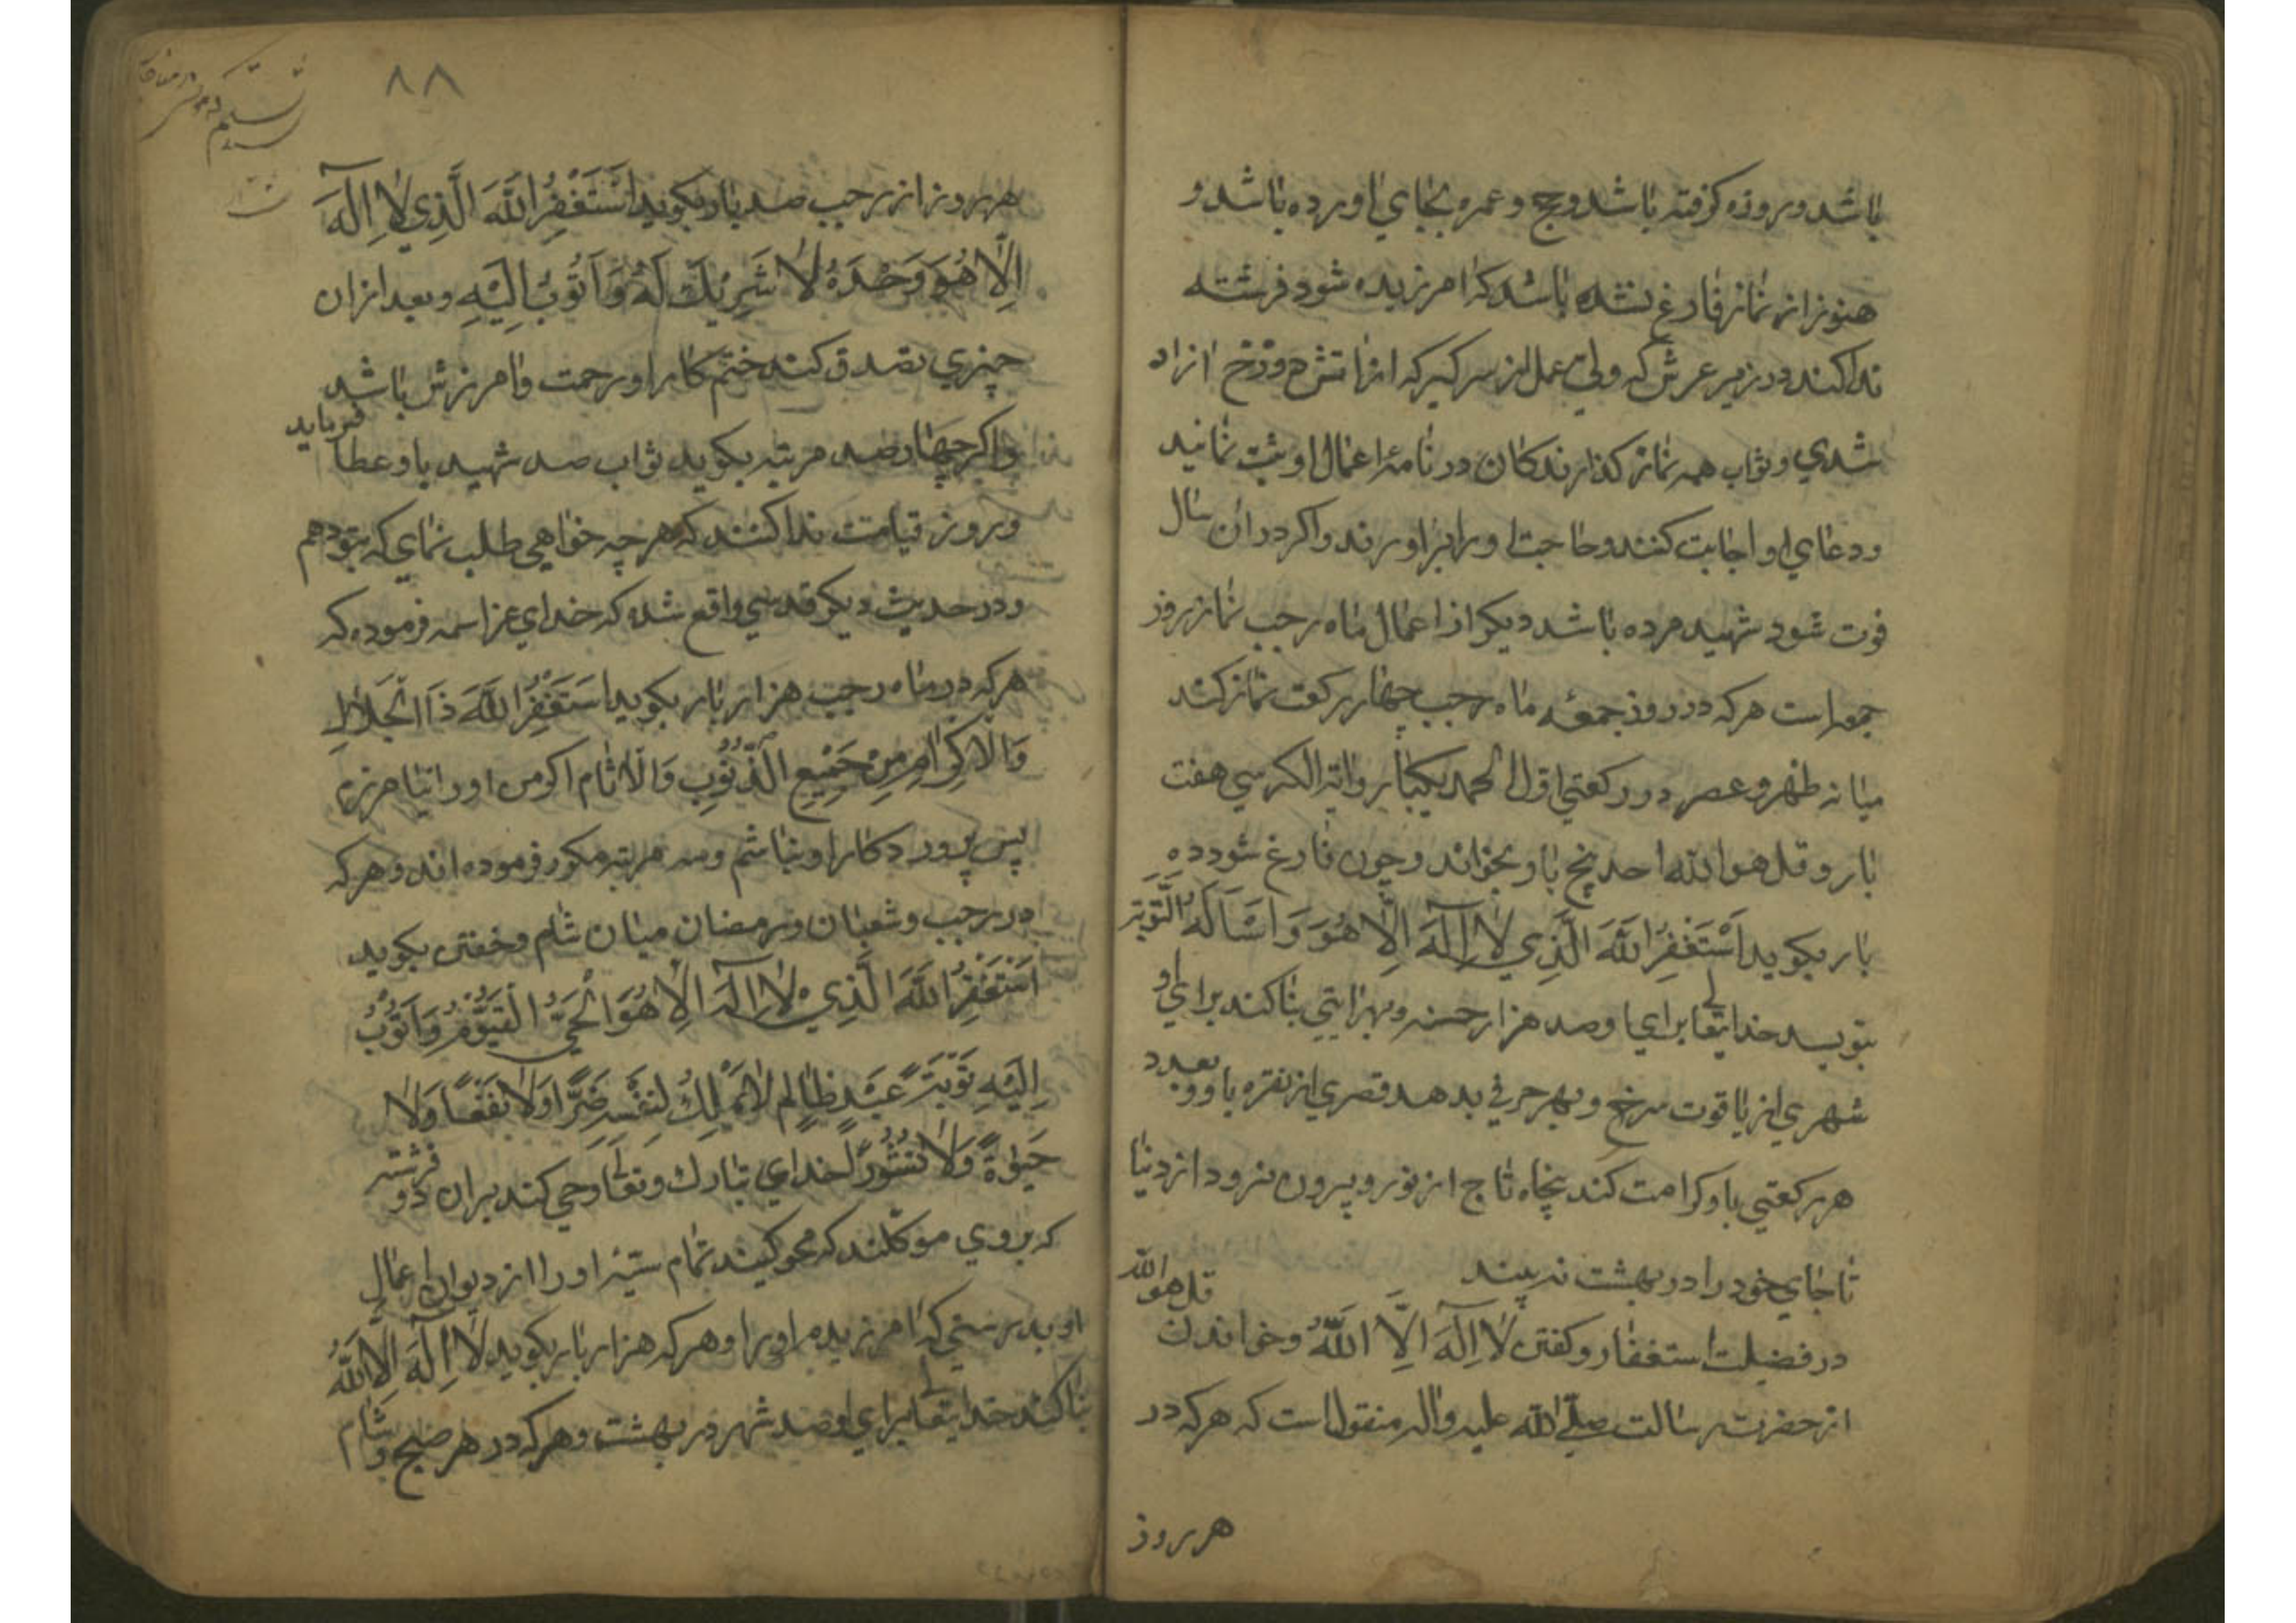 باشد و روزه کرفته باشد و حج و عمره بجای اورده باشد و
هنوز از نماز فارغ نشده باشد که امرزیده شود و فرشته
ندا کند در زیر عرش که ولی عمل از سر کیر که از اتش دوزخ ازاد
شدی و ثواب همه نماز کذارندکان در نامهٔ اعمال او ثبت نمانید
و دعای او اجابت کنند و حاجت او را براورند و اکر در ان سال
فوت شود شهید مرده باشد دیکر از اعمال ماه رجب نماز روز
جمعه است هر که در روز جمعهٔ ماه رجب چهار رکعت نماز کند
میانه ظهر و عصر در رکعتی اول الحمد یکبار و ایة الکرسی هفت
بار و قل هو الله احد پنج بار بخواند و چون فارغ شود ده
بار بکوید اَسْتَغْفِرُ اللّٰهَ الَّذِي لٰا اِلٰهَ اِلّٰا هُوَ وَ اَسْاَلُهُ التَّوْبَةَ
بنویسد خدایتعالی برای او صد هزار حسنه و بهر ایتی بنا کند برای او
شهری از یاقوت سرخ و بهر حرفی بدهد قصری از نقره باو و بعدد
هر رکعتی باو کرامت کند پنجاه تاج از نور و بیرون نرود از دنیا
تا جای خود را در بهشت نه بیند
در فضیلت استغفار و کفتن لٰا اِلٰهَ اِلَّا اللّٰهُ و خواندن قل هو الله
از حضرت رسالت صلی الله علیه واله منقول است که هر که در
هر روز
۸۸
هر روز از رجب صد بار بکوید اَسْتَغْفِرُ اللّٰهَ الَّذِي لٰا اِلٰهَ
اِلّٰا هُوَ وَحْدَهُ لٰا شَرِيْكَ لَهُ وَ اَتُوْبُ اِلَيْهِ و بعد از ان
چیزی تصدق کند ختم کار او برحمت و امرزش باشد
و اکر چهار صد مرتبه بکوید ثواب صد شهید باو عطا فرماید
و روز قیامت ندا کنند که هر چه خواهی طلب نمای که بتو دهم
و در حدیث دیکر قدسی واقع شده که خدای عز اسمه فرموده که
هر که در ماه رجب هزار بار بکوید اَسْتَغْفِرُ اللّٰهَ ذَا الْجَلٰالِ
وَالْاِكْرٰامِ مِنْ جَمِيْعِ الذُّنُوْبِ وَالْاٰثٰام اکر من او را نیامرزم
پس پروردکار او نباشم و سه مرتبه مکرر فرموده اند و هر که
در رجب و شعبان و رمضان میان شام و خفتن بکوید
اَسْتَغْفِرُ اللّٰهَ الَّذِي لٰا اِلٰهَ اِلّٰا هُوَ الْحَيُّ الْقَيُّوْمُ وَ اَتُوْبُ
اِلَيْهِ تَوْبَةَ عَبْدٍ ظٰالِمٍ لٰا يَمْلِكُ لِنَفْسِهِ ضَرًّا وَلٰا نَفْعًا وَلٰا
حَيٰوةً وَلٰا نُشُوْرًا خدای تبارك و تعالی وحی کند بران دو فرشته
که بر وی موکلند که محو کنید تمام سیئهٔ او را از دیوان اعمال
او بدرستی که امرزیدم او را و هر که هزار بار بکوید لٰا اِلٰهَ اِلَّا اللّٰهُ
بنا کند خدایتعالی برای او صد شهر در بهشت و هر که در هر صبح و شام